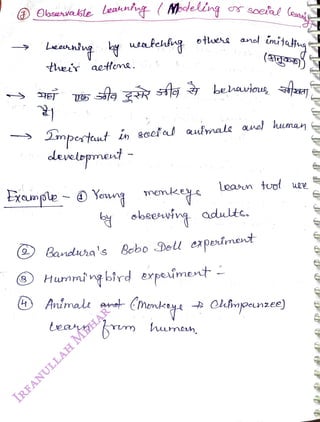 ① Observable Learning (Modeling or social Learning
→ Learning by watching others and imitating
their actions. (अनुकरण)
→ यहां एक जीव दुसरे जीव से behaviour सीखता
है।
→ Important in social animals and human
development -
Example - ① Young monkeys learn tool use
by observing adults.
② Bandura's Bobo Doll experiment
③ Hummingbird experiment -
④ Animals and (Monkeys → Chimpanzee)
learn from human.
IRFANULLAH